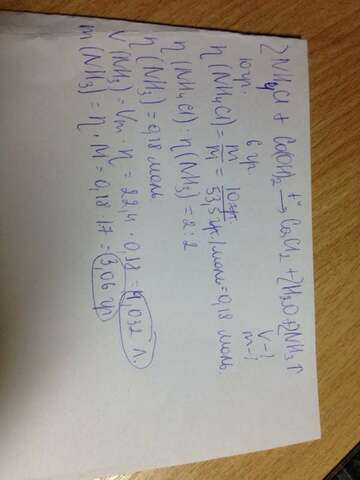 2NH4Cl + Ca(OH)2 t° → CaCl2 + 2H2O + 2NH3↑
10гр. 6 гр V-?
m-?
n (NH4Cl) = m/M = 10гр./53,5гр./моль = 0,18 моль.
n (NH4Cl) : n (NH3) = 2 : 2
n (NH3) = 0,18 моль
V (NH3) = Vm · n = 22,4 · 0,18 = 4,032 л.
m (NH3) = n · M = 0,18 · 17 = 3,06 гр